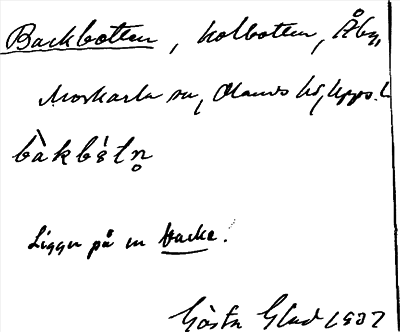 Backbotten, kolbotten, Åby,
Morkarla sn, Olands hd, Upps. l.
bàkbótn̥
Ligger på en backe.
Gösta Glad 1937